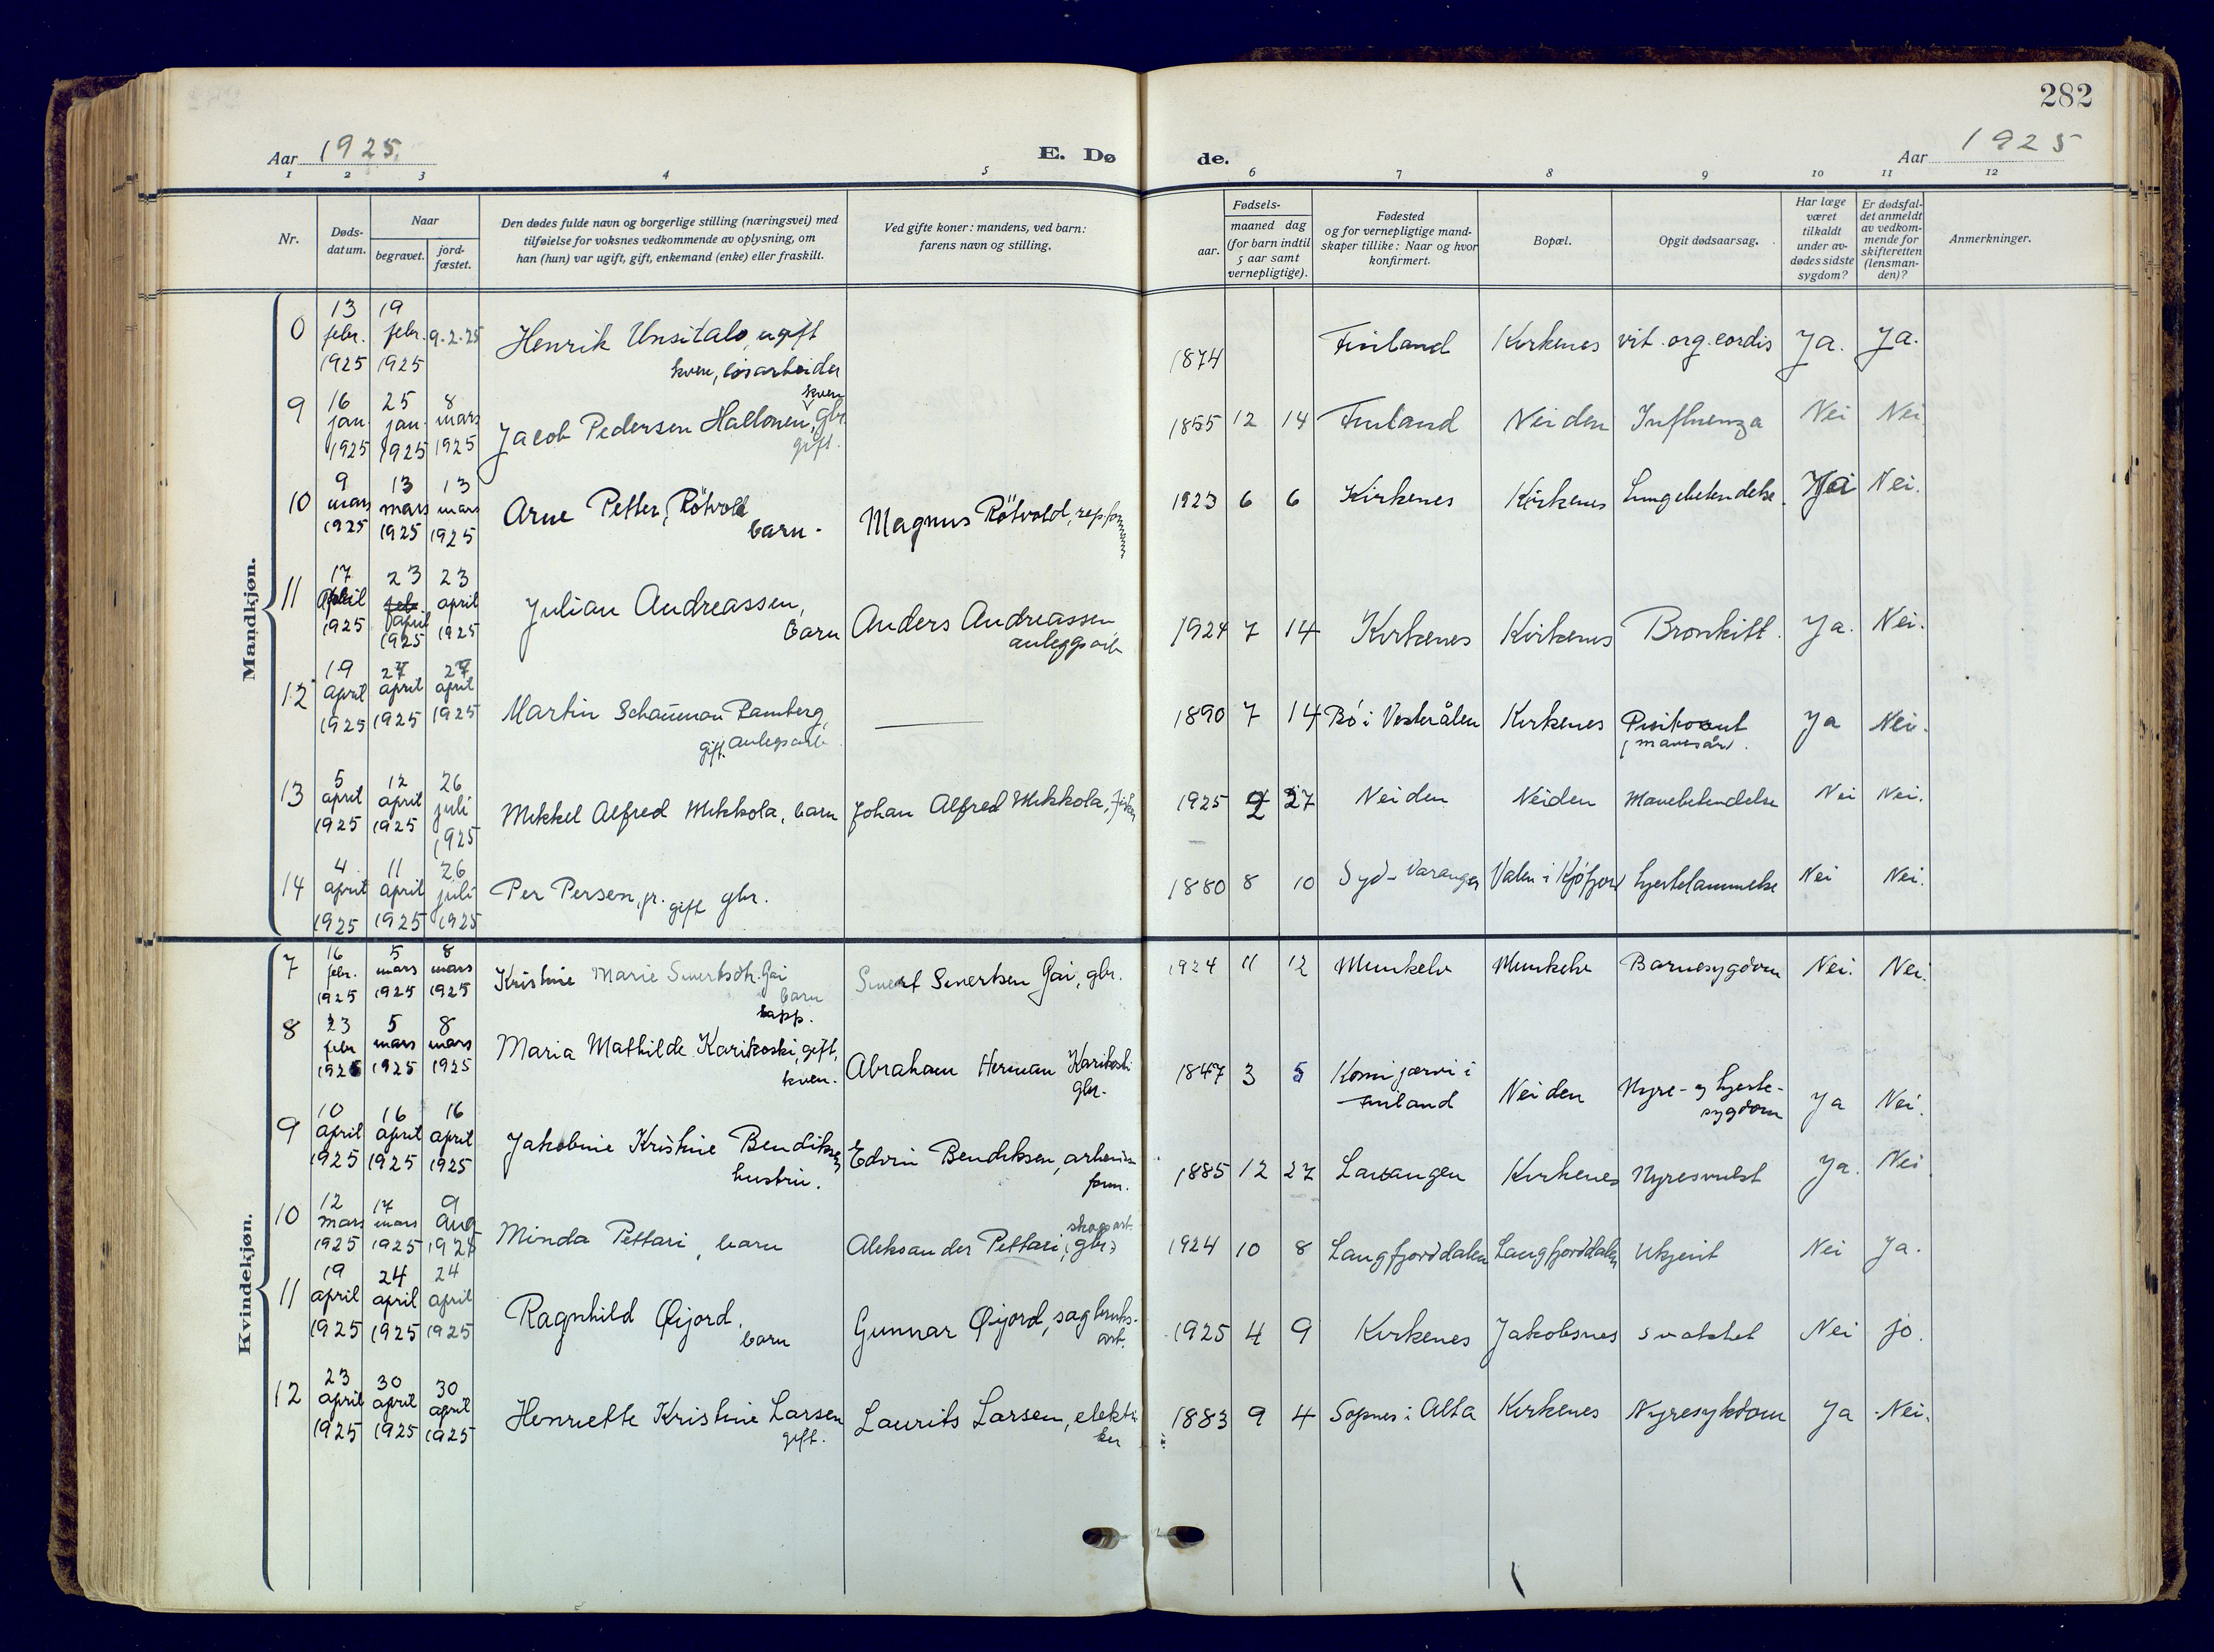 282
Aar 1925
E. Dø
de.
Aar 1925
1 2 3 4 5 6 7 8 9 10 11 12
Nr.
Døds-
datum.
Naar
begravet.
jord-
fæstet.
Den dødes fulde navn og borgerlige stilling (næringsvei) med
tilføielse for voksnes vedkommende av oplysning, om
han (hun) var ugift, gift, enkemand (enke) eller fraskilt.
Ved gifte koner: mandens, ved barn:
farens navn og stilling.
Fødsels-
aar.
maaned dag
(for barn indtil
5 aar samt
vernepligtige).
Fødested
og for vernepligtige mand-
skaper tillike: Naar og hvor
konfirmert.
Bopæl.
Opgit dødsaarsag.
Har læge
været
tilkaldt
under av-
dødes sidste
sygdom?
Er dødsfal-
det anmeldt
av vedkom-
mende for
skifteretten
(lensman-
den)?
Anmerkninger.
Mandkjøn.
0 13 febr. 1925 19 febr. 1925 9.2.25 Henrik Unsitalo, ugift
kven, løsarbeider
1874 Finland Kirkenes vit. org. cordis Ja. Ja.
9 16 jan. 1925 25 jan. 1925 8 mars 1925 Jacob Pedersen Hallonen, kven gbr.
gift.
1855 12 14 Finland Neiden Influenza Nei Nei
10 9 mars 1925 13 mars 1925 13 mars 1925 Arne Petter, Rötvold
barn.
Magnus Rötvold,
1923 6 6 Kirkenes Kirkenes Lungebetendelse Nei.
11 17 April 1925 23 april 1925 23 april 1925 Julian Andreassen,
barn
Anders Andreassen
anleggsarb
1924 7 14 Kirkenes Kirkenes Bronkitt. Ja. Nei.
12 19 april 1925 27 april 1925 27 april 1925 Martin Schaüman Ramberg,
gift. anlegsarb.
1890 7 14 Bö i Vesterålen Kirkenes (mavesår). Ja Nei.
13 5 april 1925 12 april 1925 26 juli 1925 Mikkel Alfred Mikkola, barn
Johan Alfred Mikkola,
1925 2 27 Neiden Neiden Mavebetendelse Nei Nei.
14 4 april 1925 11 april 1925 26 juli 1925 Per Persen, jr. gift gbr.
1880 8 10 Syd-Varanger Valen i Kjøfjord hjertelammelse Nei Nei.
Kvindekjøn.
7 16 febr. 1925 5 mars 1925 8 mars 1925 Kristine Marie Sivertsdtr. Gai
barn
lapp.
Sivert Sivertsen Gai, gbr.
1924 11 12 Munkelv Munkelv Barnesygdom Nei. Nei.
8 23 febr 1925 5 mars 1925 8 mars 1925 Maria Mathilde Karikoski, gift,
kven.
Abraham Herman Karikoski
gbr.
1847 3 5 Kemijærvi i
Finland
Neiden Nyre- og hjerte-
sygdom
Ja Nei.
9 10 april 1925 16 april 1925 16 april 1925 Jakobine Kristine Bendiksen
hustru.
Edvin Bendiksen, arbeids
form.
1885 12 27 Lavangen Kirkenes Nyresvulst Ja. Nei
10 12 mars 1925 17 mars 1925 9 aug 1925 Minda Pettari, barn
Aleksander Pettari, skogsarb. (gbr)
1924 10 8 Langfjorddalen Langfjorddalen Ukjent Nei Ja.
11 19 april 1925 24 april 1925 24 april 1925 Ragnhild Øijord,
barn
Gunnar Øijord, sagbruks-
arb.
1925 4 9 Kirkenes Jakobsnes svakhet Nei jo.
12 23 april 1925 30 april 1925 30 april 1925 Henriette Kristine Larsen
gift.
Laurits Larsen, elektri
ker
1883 9 4 Sopnes i Alta Kirkenes Nyresykdom Ja Nei.